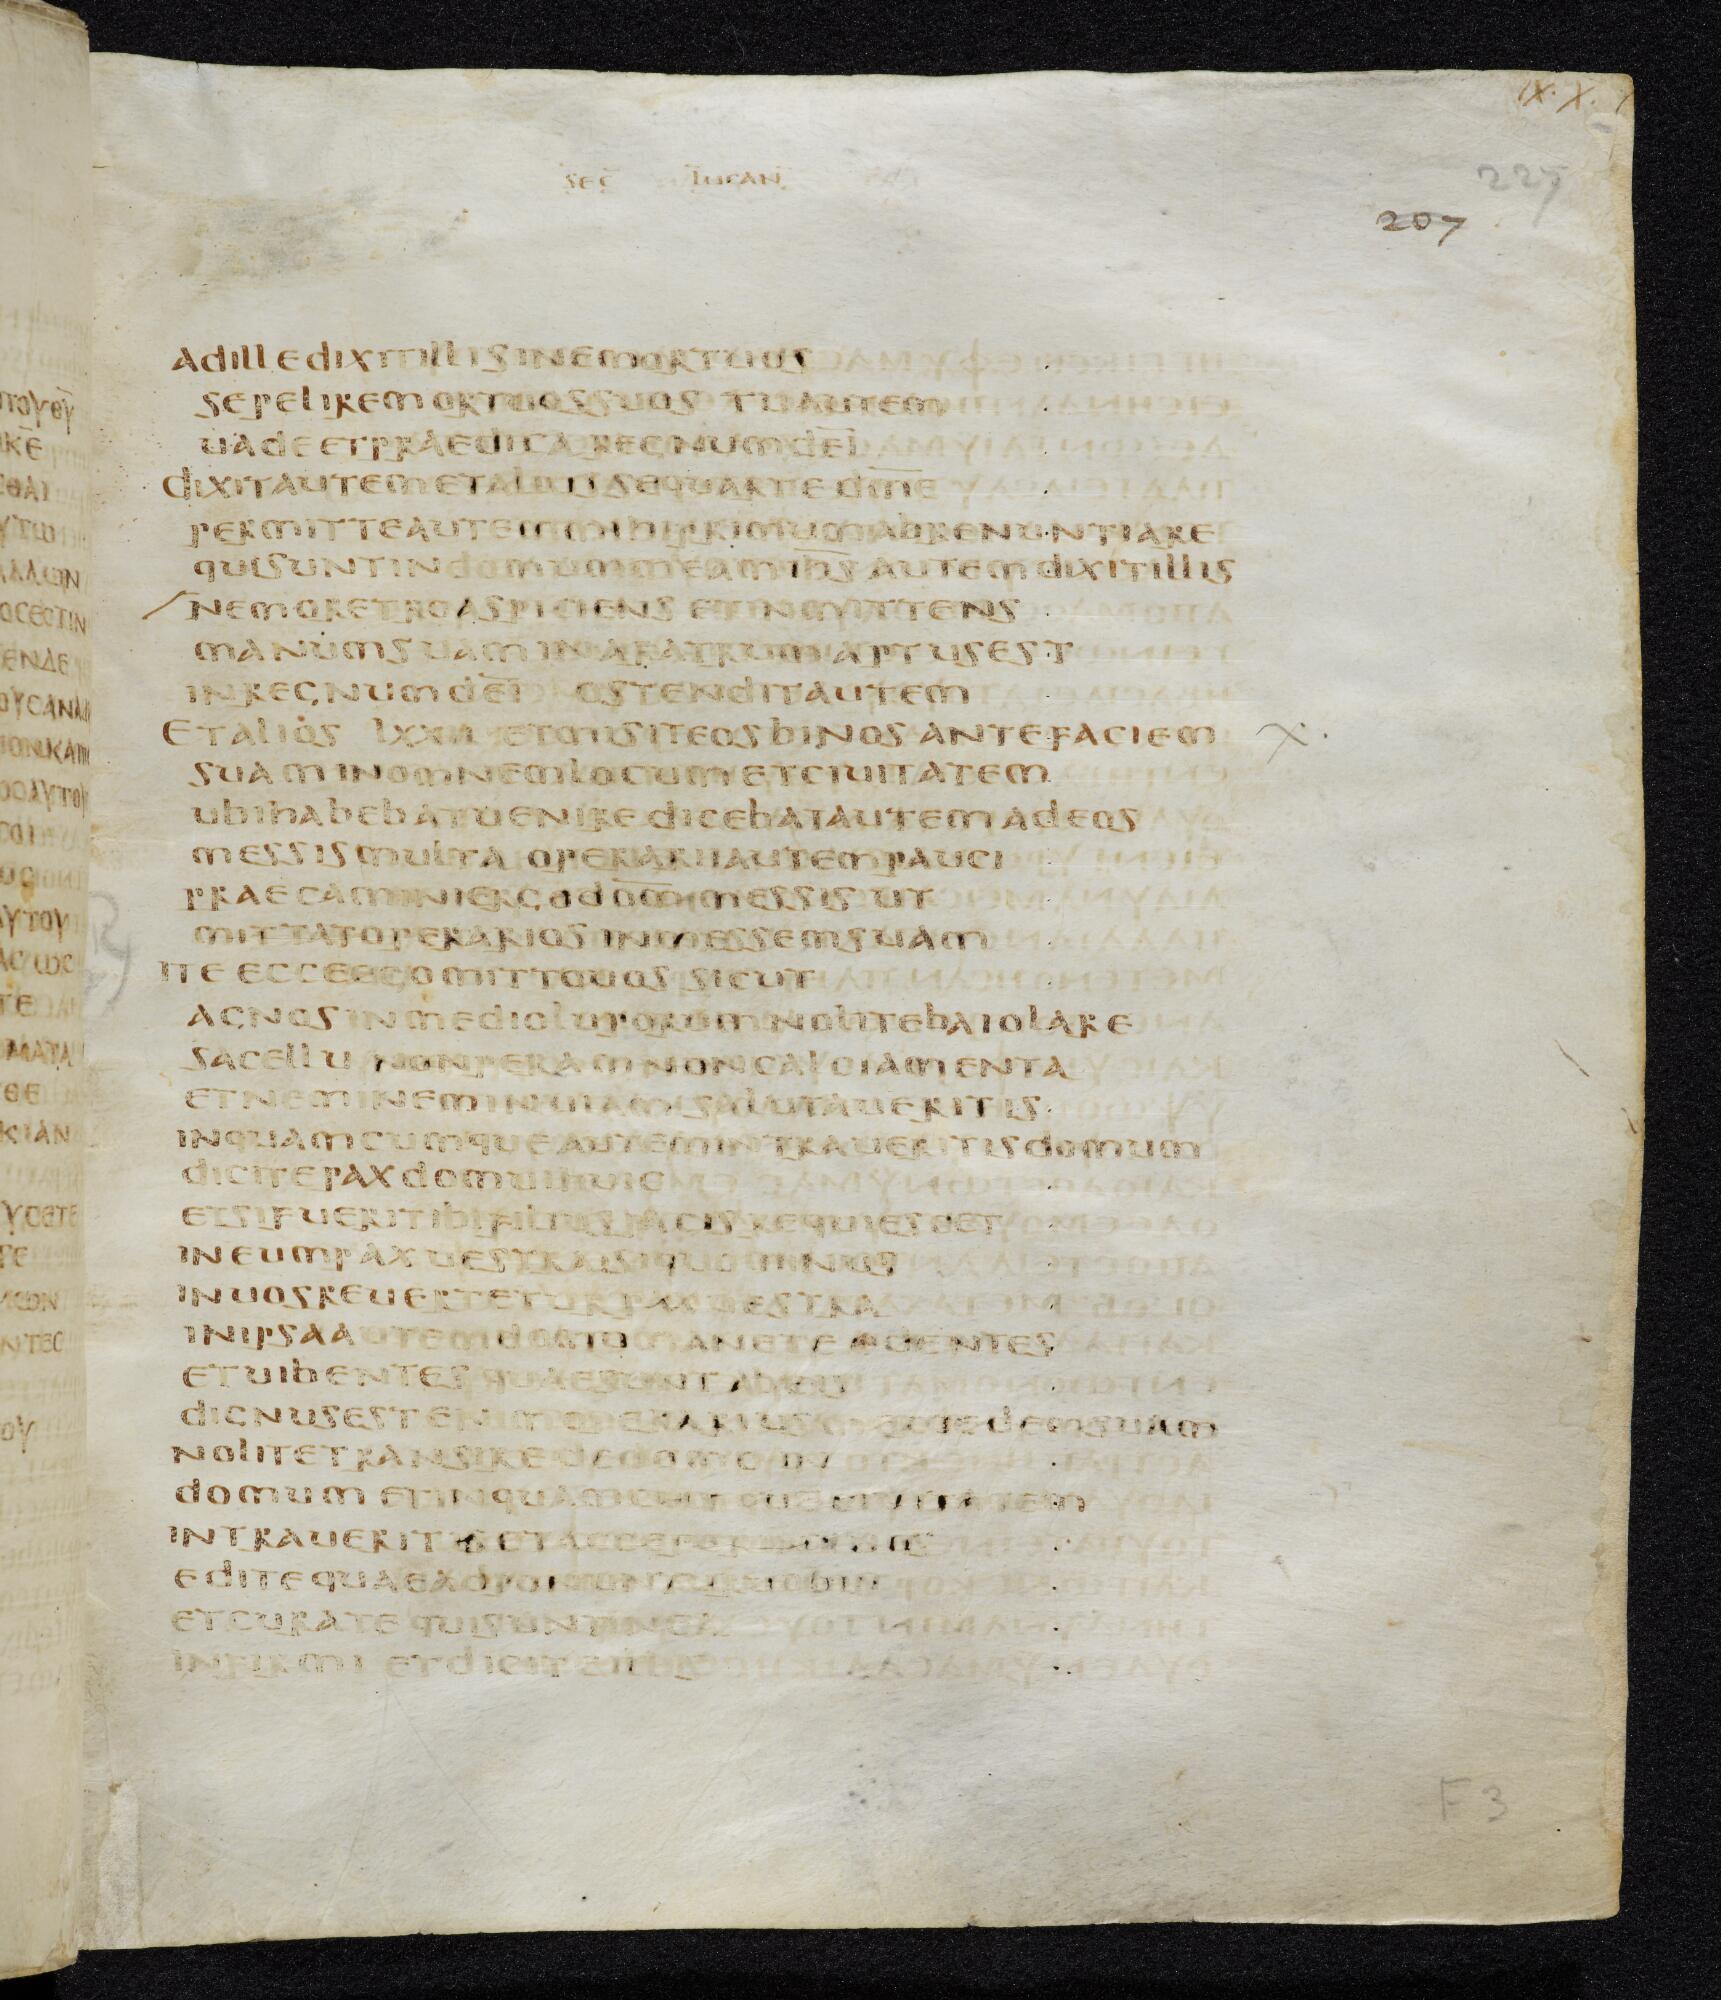 IX. X.
227
207
sec lucan
adilledixitillissinemortuos
sepeliremortuossuos tuautem
uadeetpraedicaregnumdei
dixitautemetaliussequartedme
permitteautemmihiprimumabrenuntiare
quisuntindomummeamihsautemdixitillis
nemoretroaspiciens etinmittens
manumsuaminaratrumaptusest
inregnumdei ostenditautem
etalios lxxii etmisiteosbinosantefaciem X.
suaminomnemlocumetciuitatem
ubihabebatueniredicebatautemadeos
messismulta operariiautempauci
praecaminiergodommessis ut
mittatoperariosinmessemsuam
ite ecceegomittouossicut
agnosinmedioluporumnolitebaiolare
sacellu nonperamnoncalciamenta
etnemineminuiamsalutaueritis
inquamcumqueautemintraueritisdomum
dicitepaxdomuihuic
etsifueritibifiliuspacisrequiescet
ineumpaxuestrasiquominus
inuosreuerteturpaxuestra
inipsaautemdomomaneteedentes
etuibentesquaesuntabeis
dignusestenimoperarius mercedemsuam
nolitetransirededomoin
domum etinquamcumqueciuitatem
intraueritis
editequae
etcuratequisuntinea
infirmi etdicite
F 3